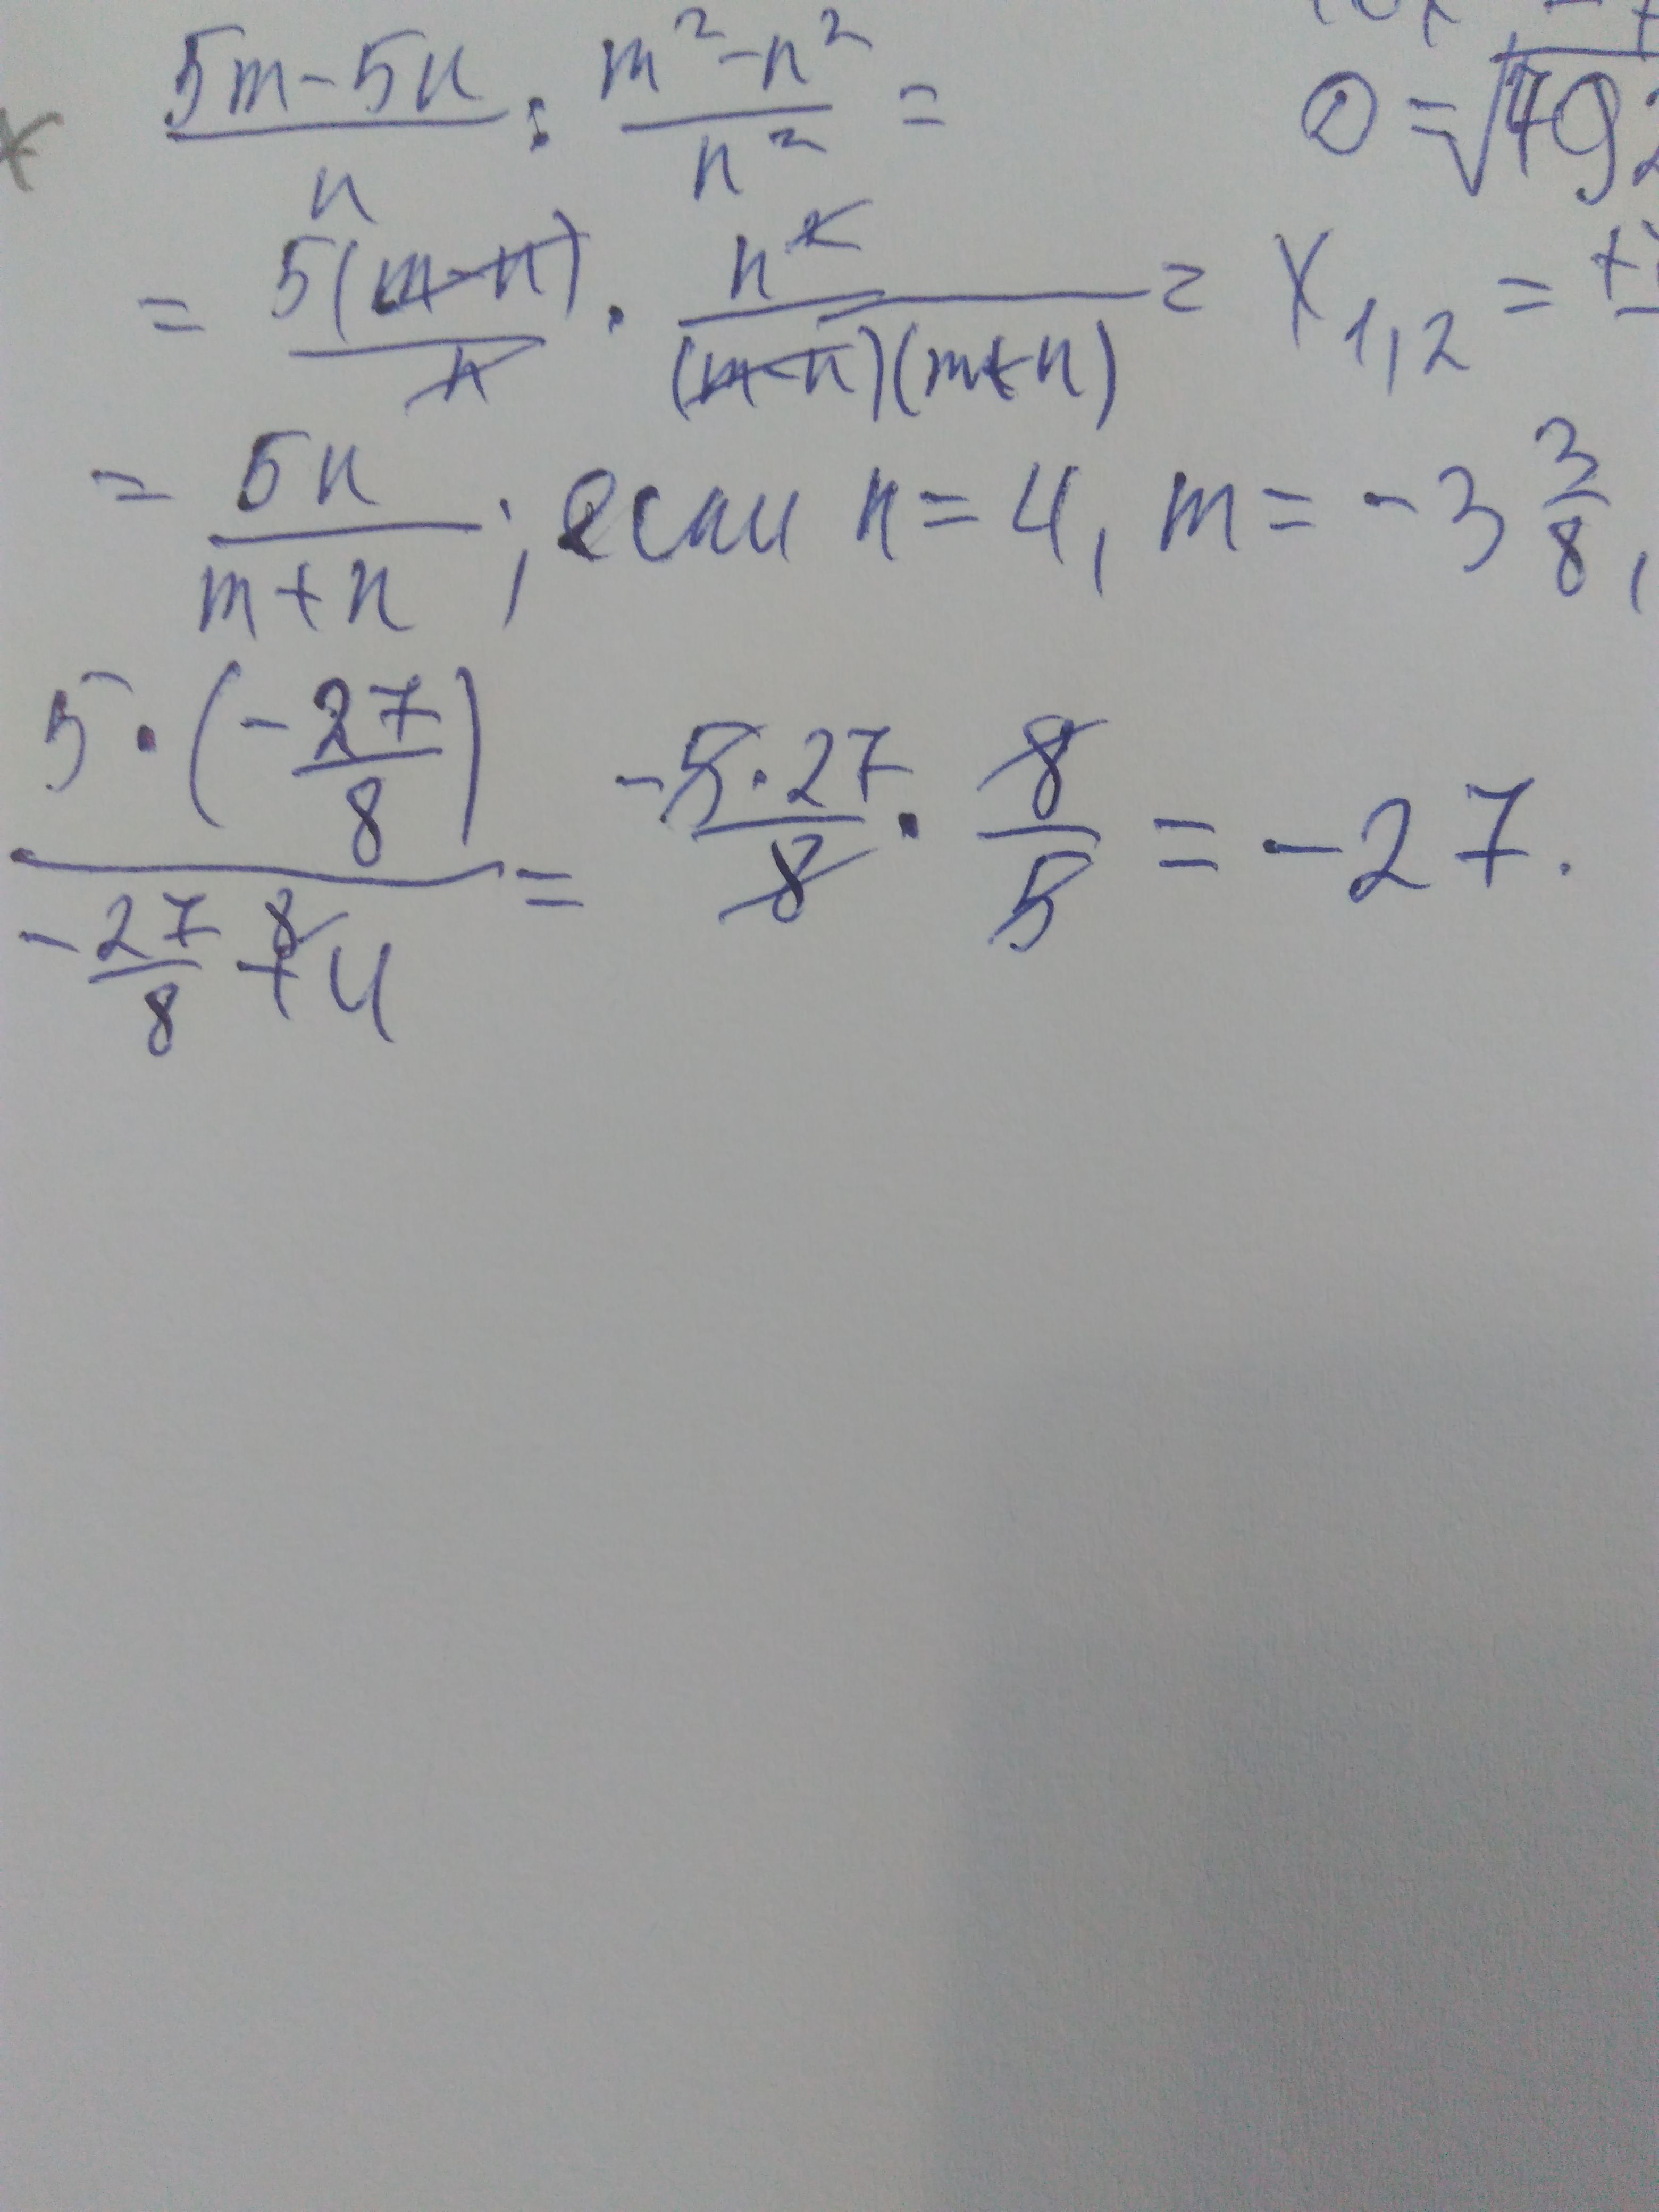 (5m-5n)/n : (m²-n²)/n² =
= 5(m-n)/n · n²/((m-n)(m+n)) =
= 5n/(m+n); если n=4, m=-3 3/8,
(5·(-27/8))/(-27/8+4) = -5·27/8 · 8/5 = -27.
D=√492
x1,2 = +